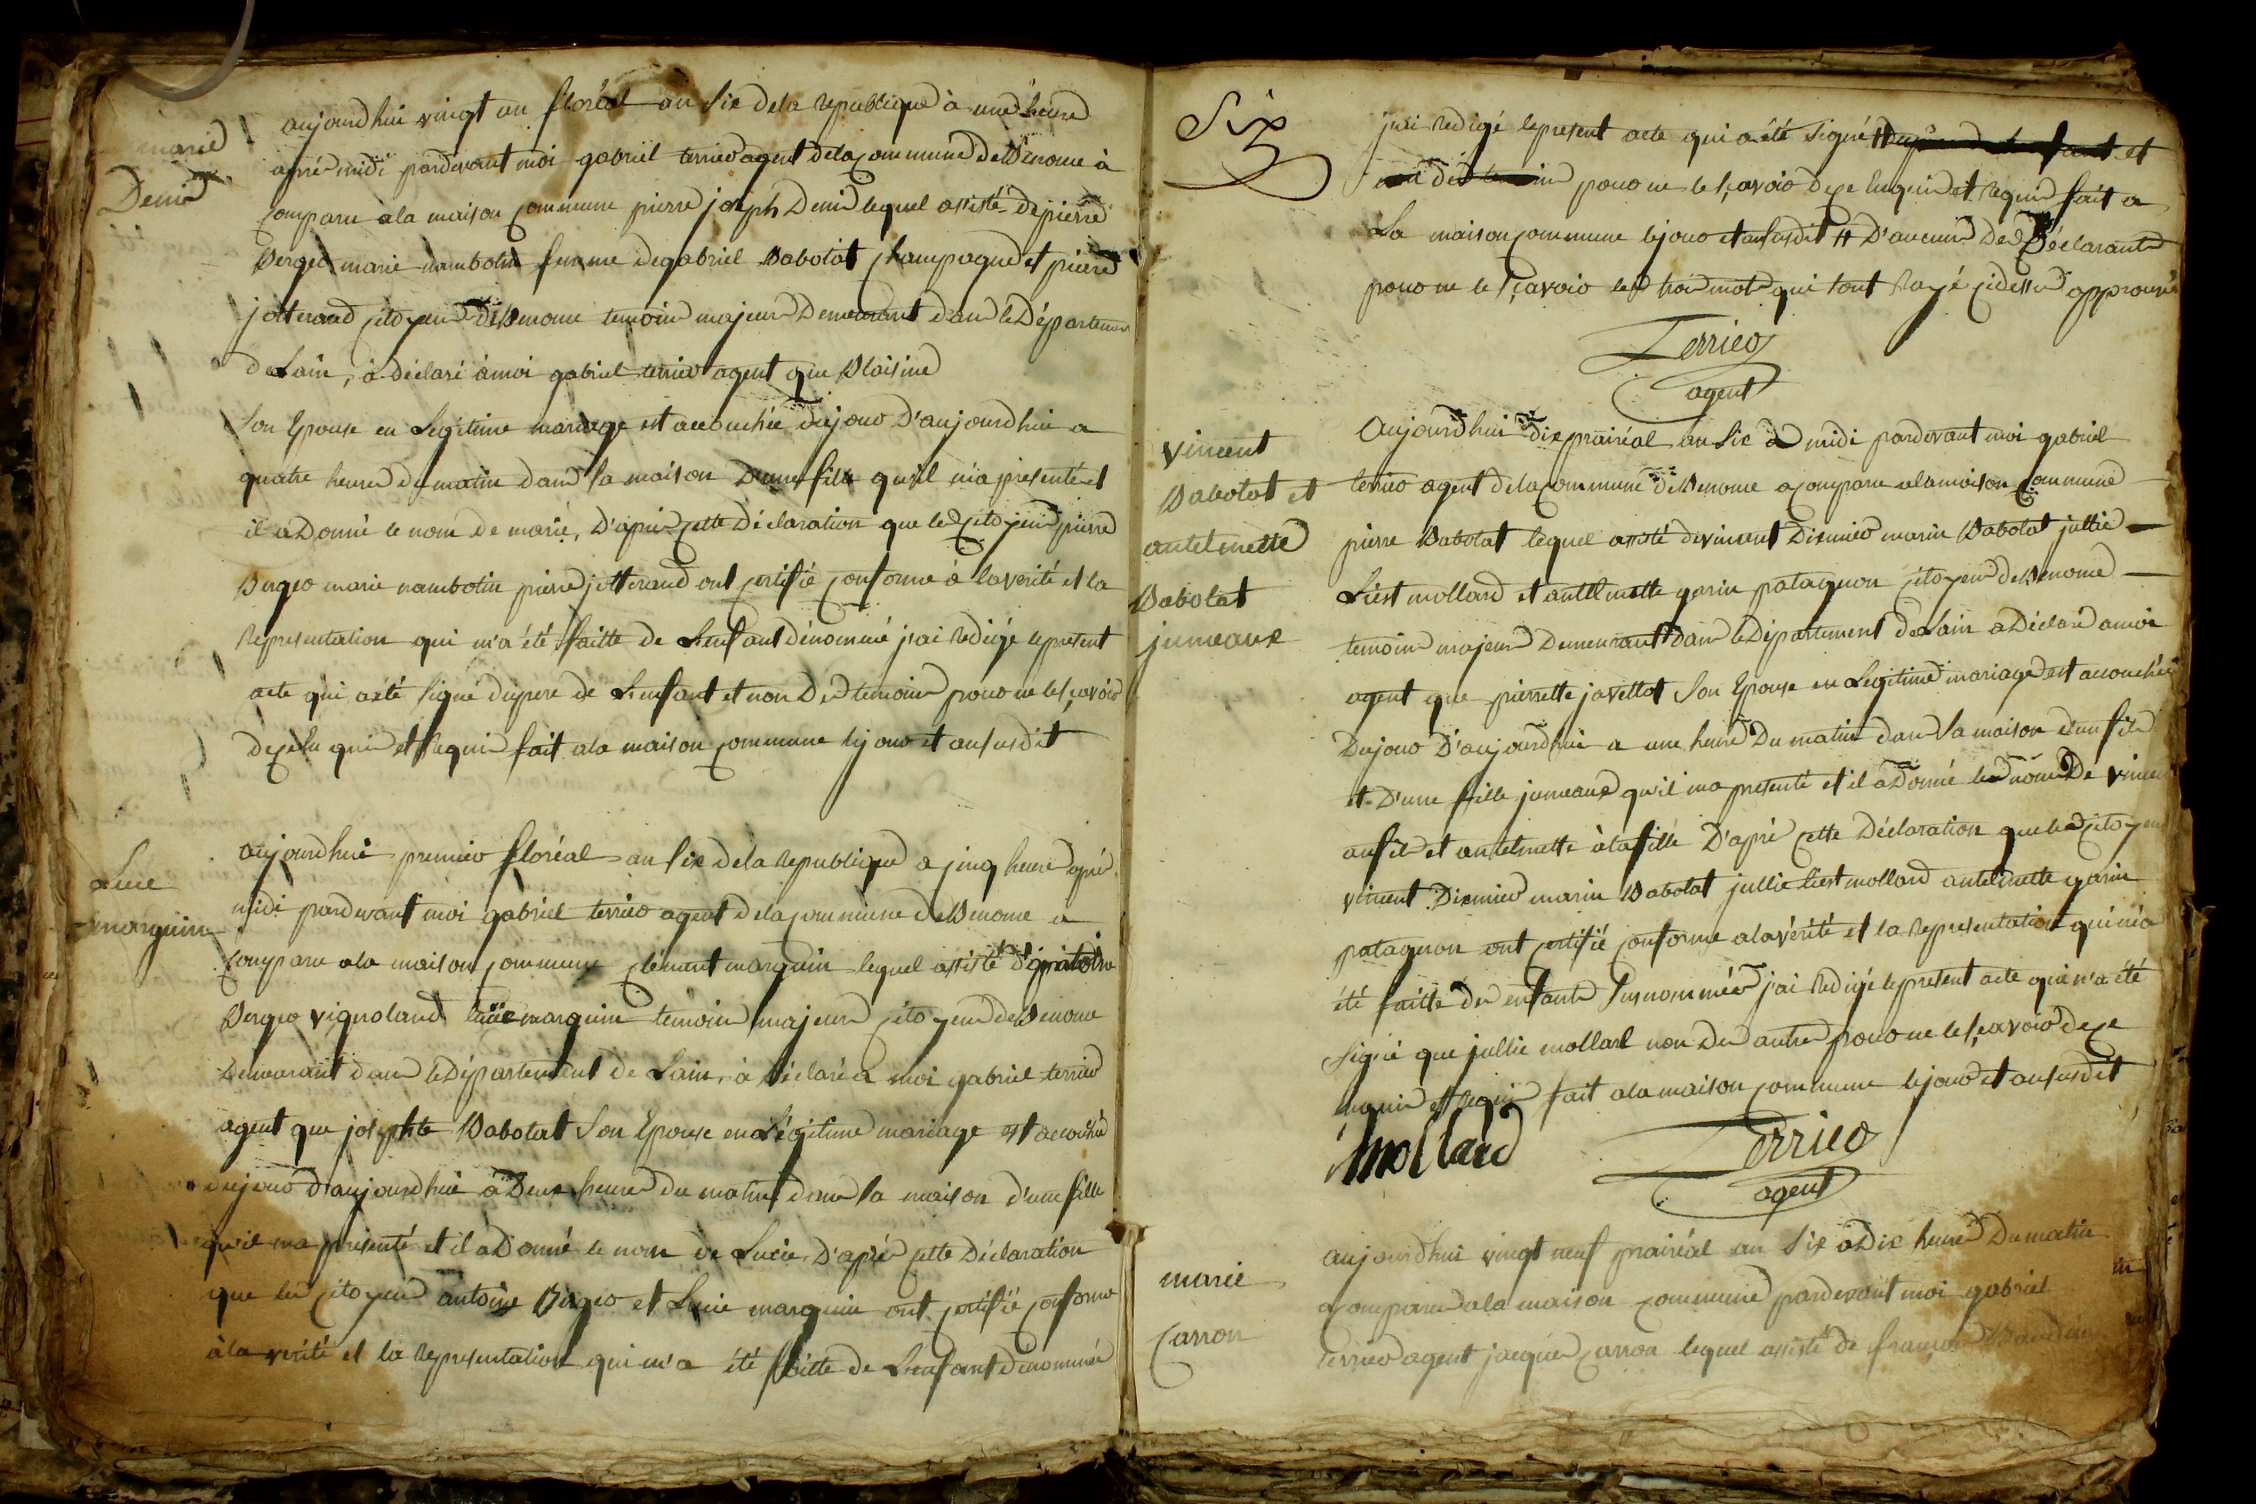 marie
Denis
aujourdhui vingt un floréal an six dela republique à une heure
aprés midi pardevant moi gabriel terrier agent dela commune de Benome à
comparu à la maison commune pierre joseph Denis lequel assisté de pierre
Berger marie nambotin femme de gabriel Babolat champagne et pierre
jotterand citoyens de Benome temoins majeurs Demeurant dans le Départemen
de Lain, à déclaré à moi gabriel terrier agent que Blaisine
Son Epouse en Legitime mariage est accouchée dujour D'aujourdhui a
quatre heures du matin dans sa maison D'une fille quil m'a presenté et
il a Donné le nom de marie, D'aprés cette Déclaration que les citoyens pierre
Berger marie nambotin pierre jotterand ont certifié conforme à la verité et la
Representation qui m'a été faitte de Lenfant dénommé j'ai redigé le present
acte qui a été signé dupere de Lenfant et non Des temoins pour ne le sçavoir
de ce Enquis et Requis fait a la maison commune le jour et an susdit
Luce
marguin
aujourdhui premier floréal an six dela Republique a cinq heures aprés
midi pardevant moi gabriel terrier agent dela commune de Benome a
comparu a la maison commune clement marguin lequel assisté d'antoine
Berger vignoland lucie marguin temoins majeurs citoyens de Benome
Demeurant dans le Département de Lain, à déclaré a moi gabriel terrier
agent que josephte Babolat Son Epouse en Légitime mariage est accouchée
dujour d'aujourdhui à Deux heures du matin dans sa maison d'une fille
qu'il ma presenté et il à Donné le nom de Lucie D'aprés cette Déclaration
que les citoyens antoine Berger et Lucie marguin ont certifié conforme
à la verité et la Representation qui m'a été faitte de Lenfant dénommée
Six
j'ai redigé lepresent acte qui a été signé dupere de Lenfant et
non des temoins pour ne le sçavoir de ce Enquis et Requis fait a
La maison commune lejour et an susdit # D'aucuns Des Déclarants
pour ne le sçavoir les trois mots qui sont Rayé cidessus approuvés
Terrier
agent
vincent
Babolat et
antelmette
Babolat
jumeaux
Aujourdhui dix prairéal an six à midi pardevant moi gabriel
terrier agent dela commune de Benome a comparu a la maison commune
pierre Babolat lequel assisté de vincent Dismier marin Babolat jullie
Liest mollard et antelmette garin patagnon citoyens de Benome
temoins majeurs Demeurant dans le Département de Lain a Déclaré a moi
agent que pierrette javellot Son Epouse en Legitime mariage est accouchée
Dujour D'aujourdhui a une heure Du matin dans sa maison d'un fils
et D'une fille jumeaux qu'il ma presenté et il a Donné les noms De vincen
au fils et antelmette à la fille D'aprés cette Déclaration que les citoyens
vincent Dismier marin Babolat jullie Liest mollard antelmette garin
patagnon ont certifié conforme a la vérité et la Representation qui m'a
été faitte des enfants Susnommées j'ai redigé le present acte qui n'a été
signé que jullie mollard non Des autres pour ne le sçavoir de ce
enquis et Requis fait a la maison commune lejour et an susdit
mollard
Terrier
agent
marie
carron
aujourdhui vingt neuf prairéal an six à Dix heures Du matin
a comparu a la maison commune pardevant moi gabriel
terrier agent jacques carron lequel assisté de francois